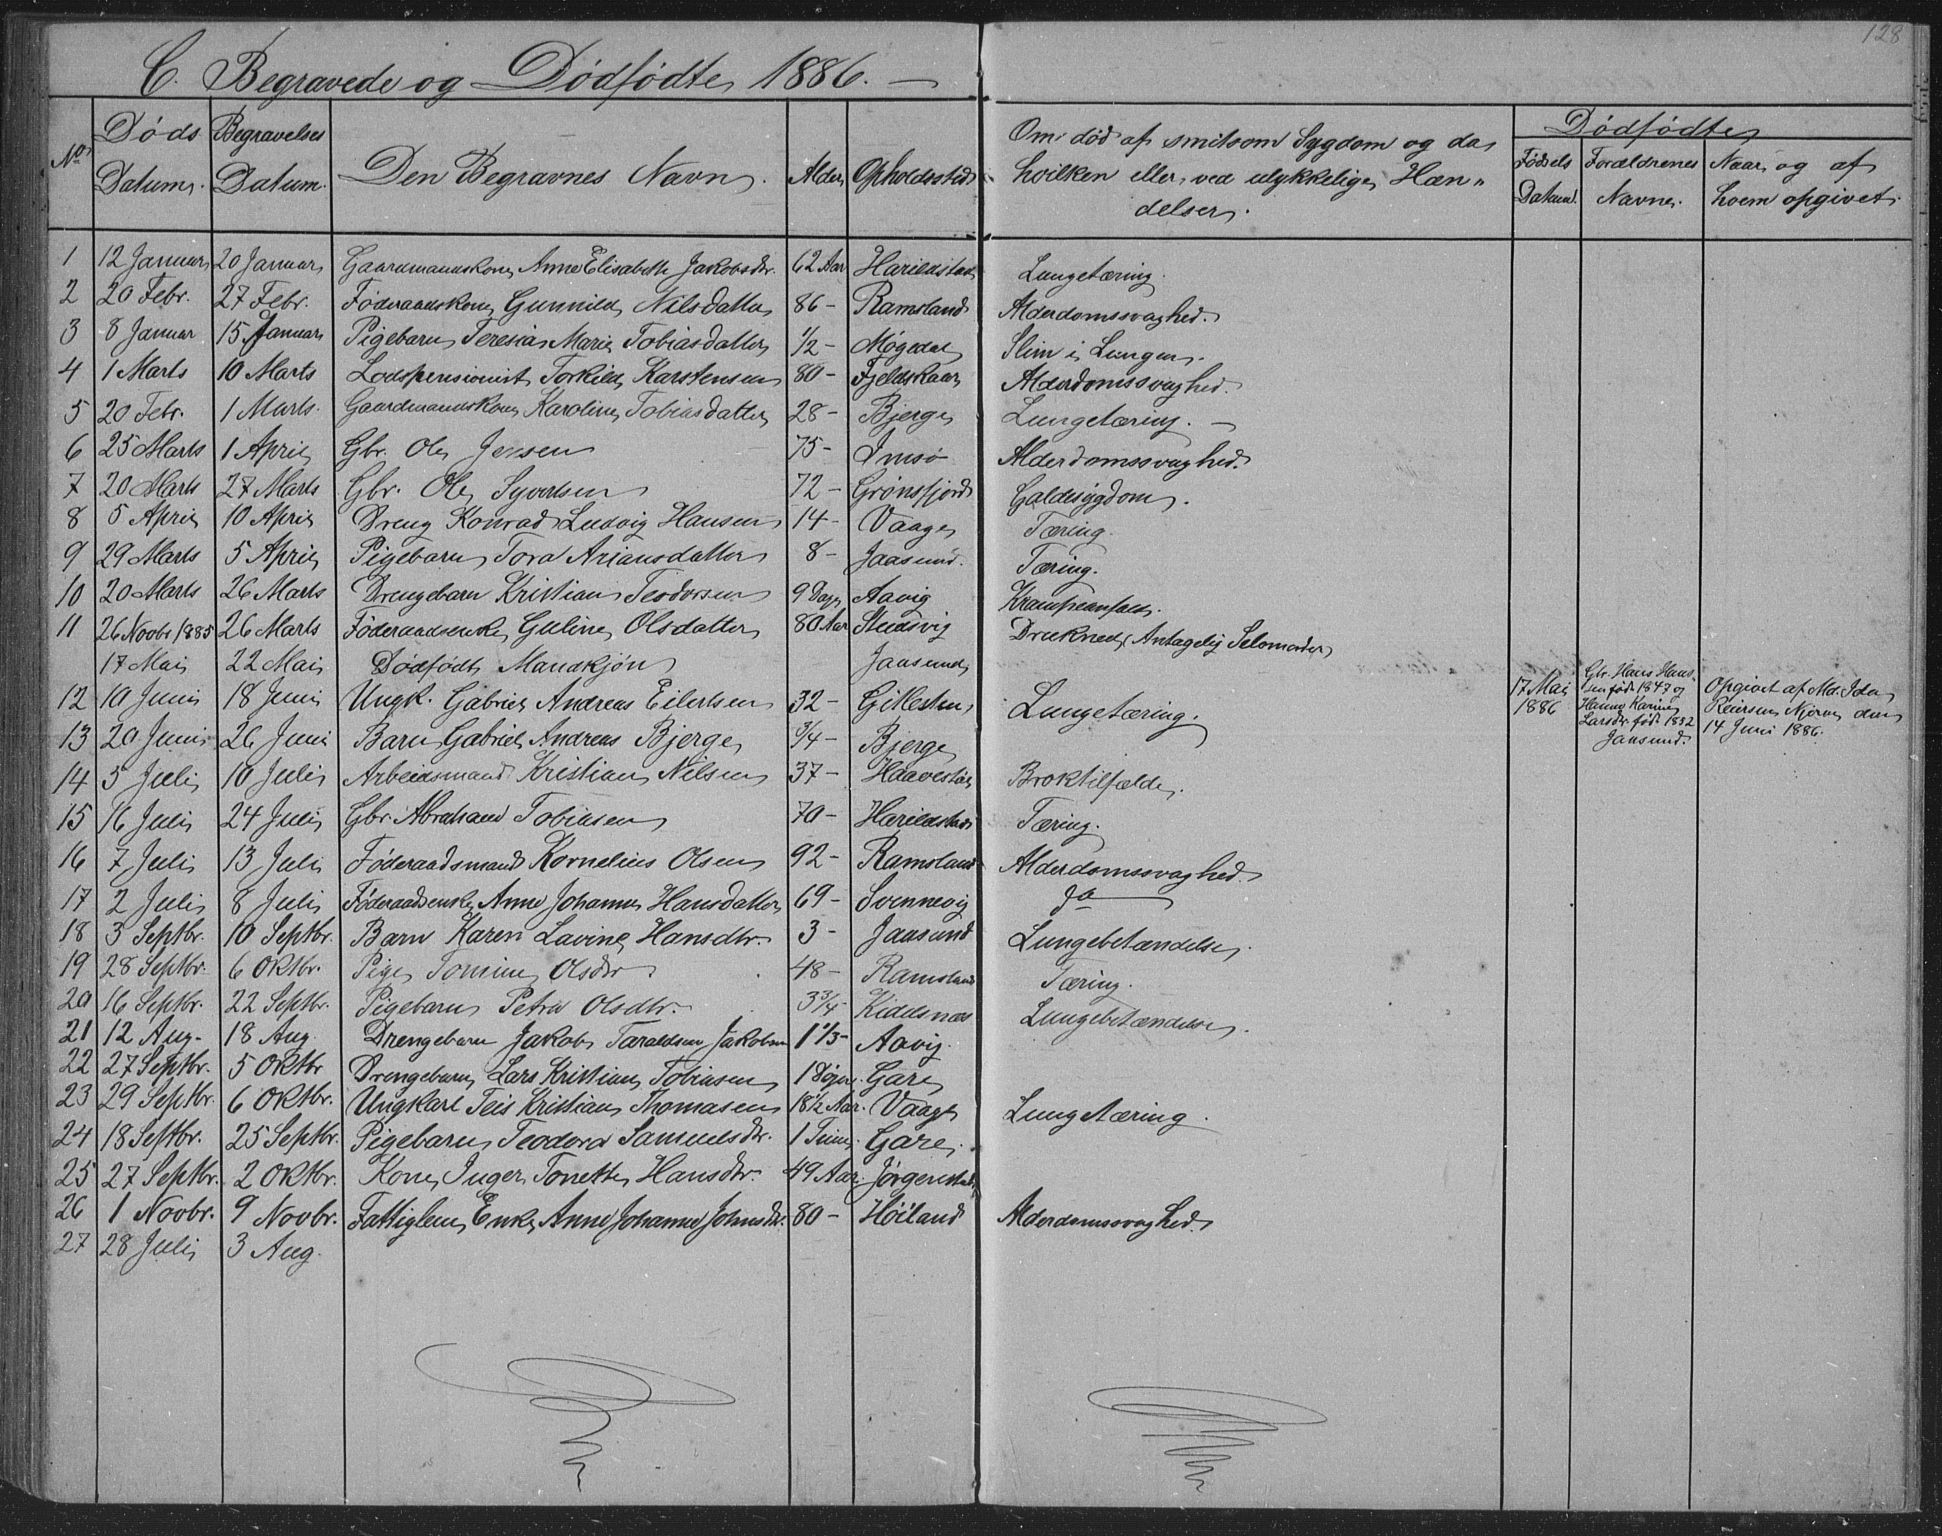 128
C. Begravede og Dødfødte 1886. —
No
Døds Datum.
Begravelses Datum.
Den Begravnes Navn.
Alder
Opholdssted
Om død af smitsom Sygdom og da hvilken eller ved ulykkelige Hæn„delser.
Dødfødte
Fødsels Datum.
Forældrenes Navne.
Naar og af hvem opgivet.
1 12 Januar 20 Januar Gaardmandskone Anne Elisabeth Jakobsdtr. 62 Aar Harildstad Lungetæring.
2 20 Febr. 27 Febr. Føderaadskone Gunnild Nilsdatter 86 – Ramsland Alderdomssvaghed.
3 8 Januar 15 Januar Pigebarn Teresia Marie Tobiasdatter 1/2 – Møgedal Slim i Lungen.
4 1 Marts 10 Marts Lodspensionist Torkild Karstensen 80 – Fjeldskaar Alderdomssvaghed.
5 20 Febr. 1 Marts. Gaardmandskone Karoline Tobiasdatter 28 – Bjerge Lungetæring. –
6 25 Marts 1 April Gbr. Ole Jensen 75 – Imsø Alderdomssvaghed.
7 20 Marts 27 Marts Gbr. Ole Syvertsen 72 – Grønsfjord Galdesygdom.
8 5 April 10 April Dreng Konrad Ludvig Hansen 14 – Vaage Tæring.
9 29 Marts 5 April Pigebarn Tora Ariansdatter 8 – Jaasund. Tæring.
10 20 Marts 26 Marts Drengebarn Kristian Teodorsen 9 Dage Aavig Krampeanfald.
11 26 Novbr 1885 26 Marts Føderaadsenke Guline Olsdatter 80 Aar Stusvig Druknet, Antagelig Selvmorder
17 Mai 22 Mai Dødfødt Mandkjøn Jaasund 17 Mai 1886 Gbr. Hans Hansen født 1847 og Hanne Karine Larsdtr. født 1852 Jaasund. Opgivet af Md. Ida Reiersen Njerve den 14 Juni 1886.
12 10 Juni 18 Juni Ungk. Gabriel Andreas Eilertsen 32 – Gillesten Lungetæring.
13 20 Juni 26 Juni Barn Gabriel Andreas Bjerge 3/4 – Bjerge
14 5 Juli 10 Juli Arbeidsmand Kristian Nilsen 37 – Haavestøl Broktilfælde.
15 16 Juli 24 Juli Gbr. Abraham Tobiasen 70 – Harildstad Tæring.
16 7 Juli 13 Juli Føderaadsmand Kornelius Olsen 92 – Ramsland Alderdomssvaghed.
17 2 Juli 8 Juli Føderaadsenke Anne Johanne Hansdatter 69 – Svennevig do
18 3 Septbr. 10 Septbr. Barn Karen Lavine Hansdtr. 3 – Jaasund Lungebetændelse.
19 28 Septbr. 6 Oktbr. Pige Tomine Olsdtr 48 – Ramsland Tæring.
20 16 Septbr. 22 Septbr. Pigebarn Petra Olsdtr. 3 3/4 – Kiddsnæs Lungebetændelse.
21 12 Aug. 18 Aug. Drengebarn Jakob Taraldsen Jakobsen 1 1/3 – Aavig.
22 27 Septbr. 5 Oktbr Drengebarn Lars Kristian Tobiasen 1 Døgn. Gare
23 29 Septbr. 6 Oktbr. Ungkarl Teis Kristian Thomasen 18 1/2 Aar. Vaage Lungetæring.
24 18 Septbr. 25 Septbr. Pigebarn Teodora Samuelsdtr. 1 Time. Gare.
25 27 Septbr. 2 Oktbr. Kone Inger Tonette Hansdtr. 49 Aar. Jørgenstad
26 1 Novbr. 9 Novbr. Fattiglem, Enke Anne Johanne Johnsdtr. 80 – Høiland Alderdomssvaghed.
27 28 Juli 3 Aug.